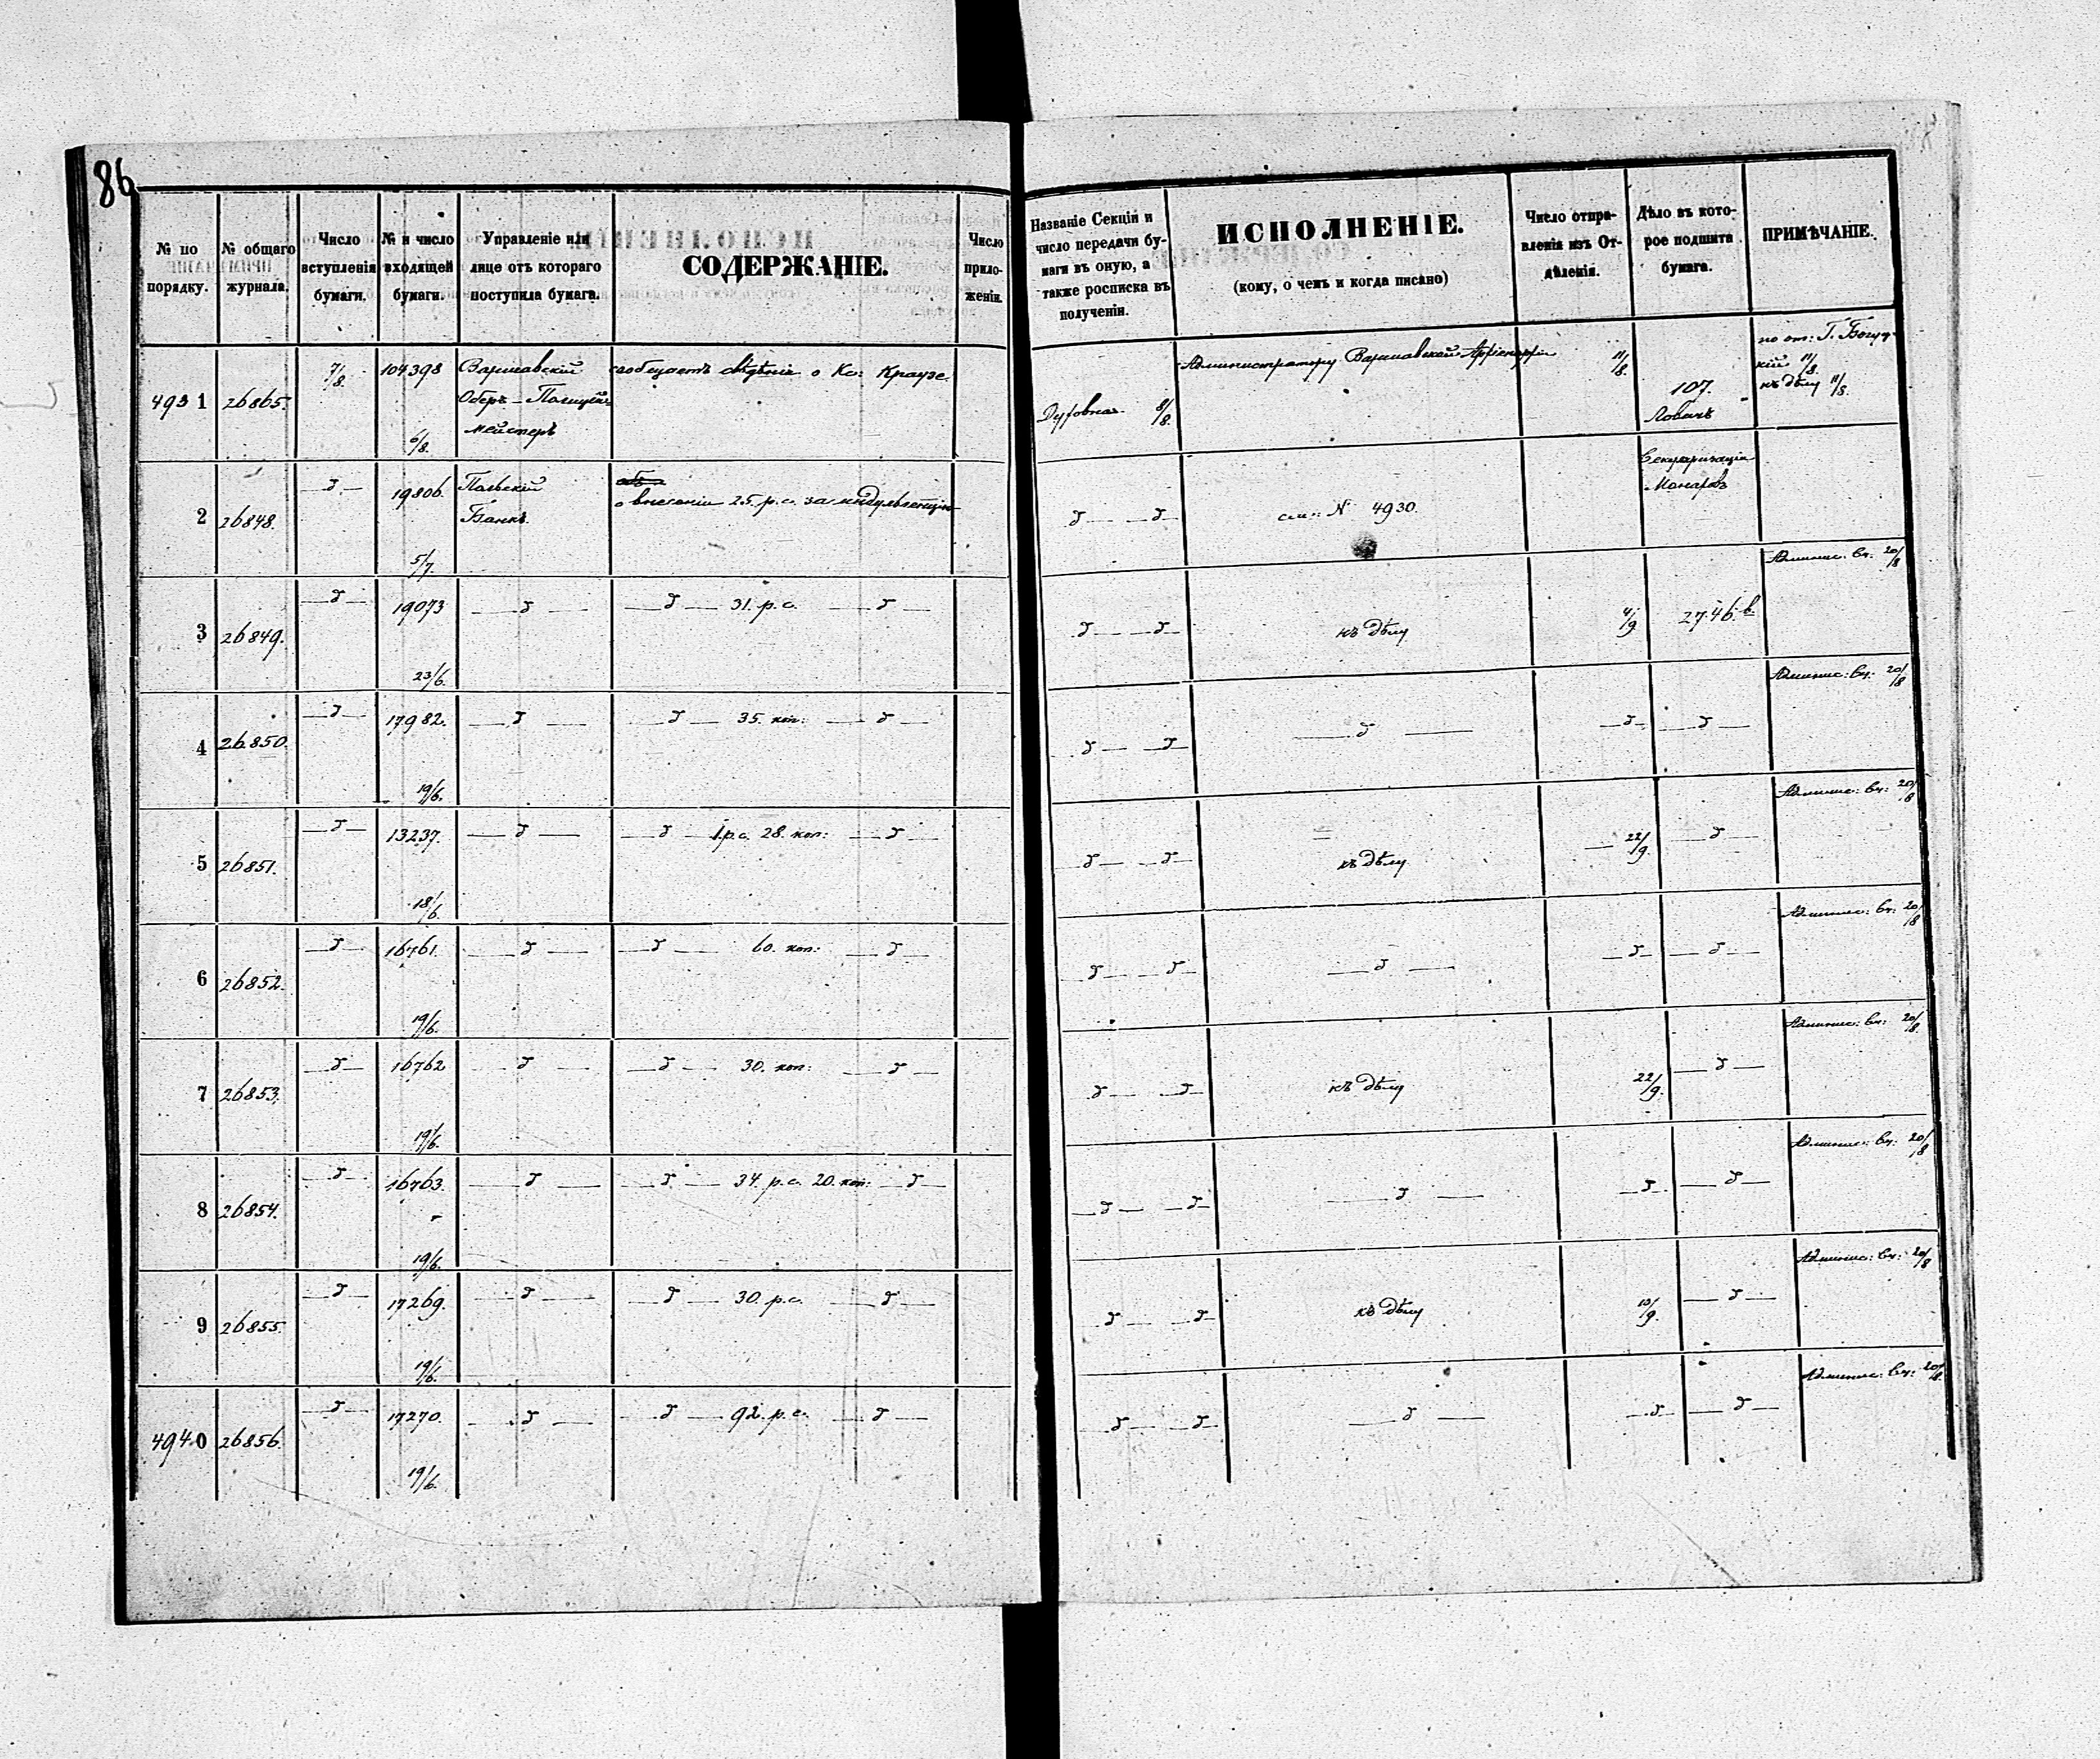 86
№ по порядку.
№ общаго журнала.
Число вступленія бумаги.
№ и число входящей бумаги.
Управленіе или лице отъ котораго поступила бумага.
СОДЕРЖАНІЕ.
Число приложеній.
Названіе Секціи и число передачи бумаги въ оную, а также росписка въ полученіи.
ИСПОЛНЕНІЕ.
(кому, о чемъ и когда писано)
Число отправленія изъ Отдѣленія.
Дѣло въ которое подшита бумага.
ПРИМѢЧАНІЕ.
4931 26865. 7/8. 104398 6/8. Варшавскій
Оберъ-Полицій-
мейстеръ
сообщаетъ свѣдѣніе о Кс: Краузе.
Духовная 8/8. Администратору Варшавской Архіепархіи 11/8. 107.
Ловичъ
по от: Г. Богуц-
кій 11/8.
къ дѣлу 11/8.
2 26848. д 19806. 5/7. Польскій
Банкъ.
о внесеніи 25. р. с. за индульгенцію
д д см: N 4930. Секуляризація
Монаховъ
3 26849. д 19073 23/6. д д 31. р. с. д
д д къ дѣлу 4/9 2746. в. Админис: вч: 20/8
4 26850. д 17982. 19/6. д д 35. коп: д
д д д д д Админис: вч: 20/8
5 26851. д 13237. 18/6. д д 1 р. с. 28. коп: д
д д къ дѣлу 22/9. д Админис: вч: 20/8
6 26852. д 16761. 19/6. д д 60. коп: д
д д д д д Админис: вч: 20/8
7 26853. д 16762 19/6. д д 30. коп: д
д д къ дѣлу 22/9. д Админис: вч: 20/8.
8 26854. д 16763. 19/6. д д 34. р. с. 20. коп: д
д д д д д Админис: вч: 20/8
9 26855. д 17269. 19/6. д д 30. р. с. д
д д къ дѣлу 10/9. д Админис: вч: 20/8
4940 26856. д 17270. 19/6. д д 92. р. с. д
д д д д д Админис: вч: 20/8.